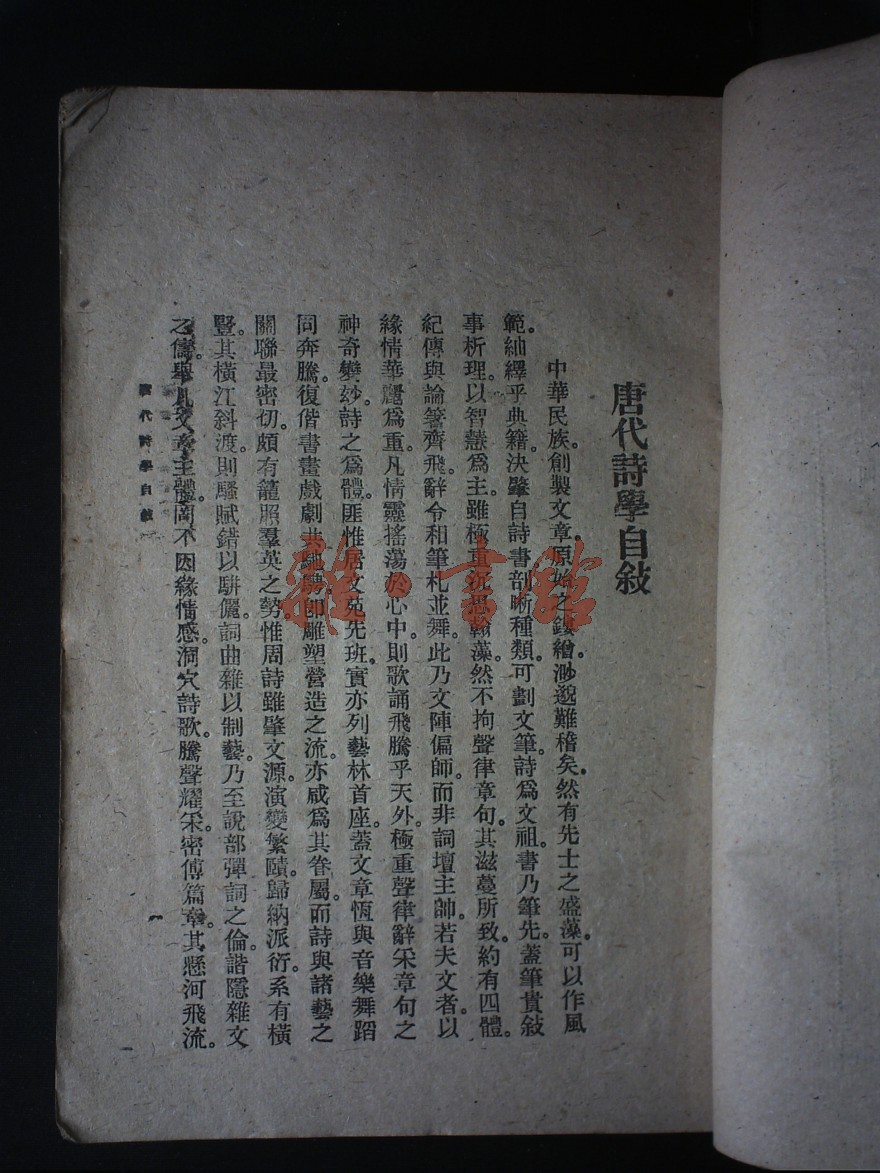 唐代詩學自敍
中華民族。創製文章。原始之鏤繪。渺邈難稽矣。然有先士之盛藻。可以作風
範。紬繹乎典籍。決肇自詩書。剖晰種類。可劃文筆。詩爲文祖。書乃筆先。蓋筆貴敍
事析理。以智慧爲主。雖極重沉思翰藻。然不拘聲律章句。其滋蔓所致。約有四體。
紀傳與論箸齊飛。辭令和筆札並舞。此乃文陣偏師。而非詞壇主帥。若夫文者。以
緣情華麗爲重。凡情靈搖蕩於心中。則歌誦飛騰乎天外。極重聲律辭采章句之
神奇變玅。詩之爲體。匪惟居文苑先班。實亦列藝林首座。蓋文章恆與音樂舞蹈
同奔騰。復偕書畫戲劇共馳騁。卽雕塑營造之流。亦咸爲其眷屬。而詩與諸藝之
關聯最密切。頗有籠照羣英之勢。惟周詩雖肇文源。演變繁賾。歸納派衍。系有橫
豎。其橫江斜渡。則騷賦錯以駢儷。詞曲雜以制藝。乃至說部彈詞之倫。諧隱雜文
之儔。舉凡文章主體。罔不因緣情感。洞穴詩歌。騰聲耀采。密傅篇章。其懸河飛流。
唐代詩學自敍
一
雜·書館